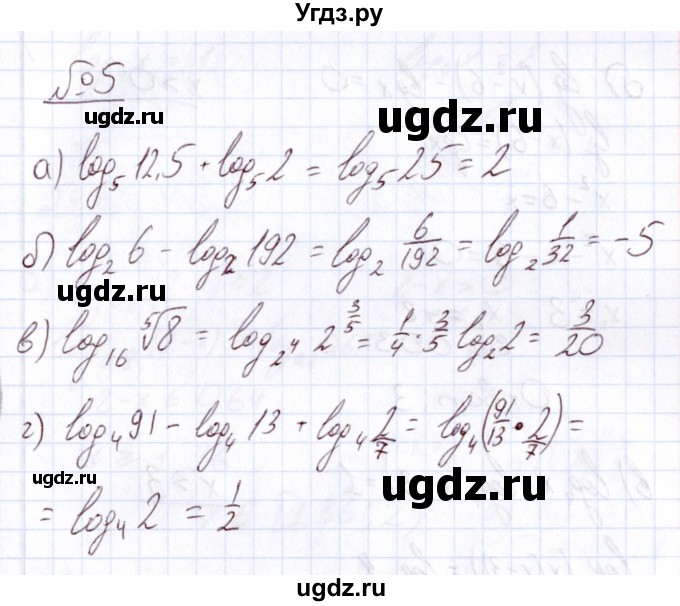 Угдз.ру
№5
ugdz.ru
а) log₅ 12,5 + log₅ 2 = log₅ 25 = 2
ugdz.ru
б) log₂ 6 - log₂ 192 = log₂ 6/192 = log₂ 1/32 = -5
ugdz.ru
в) log₁₆ ⁵√8 = log_{2⁴} 2^{3/5} = 1/4 · 3/5 log₂ 2 = 3/20
г) log₄ 91 - log₄ 13 + log₄ 2/7 = log₄ (91/13 · 2/7) =
ugdz.ru
ugdz.ru
= log₄ 2 = 1/2
ugdz.ru